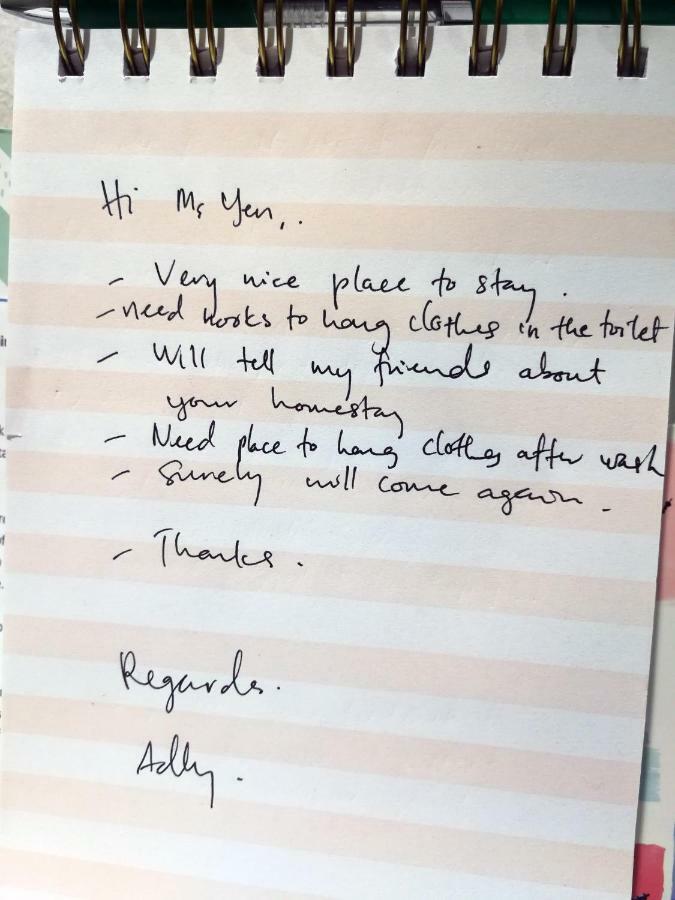 Hi Ms Yen,.
- Very nice place to stay.
- need hooks to hang clothes in the toilet
- Will tell my friends about
your homestay
- Need place to hang clothes after wash
- Surely will come again.
- Thanks.
Regards.
Adly.